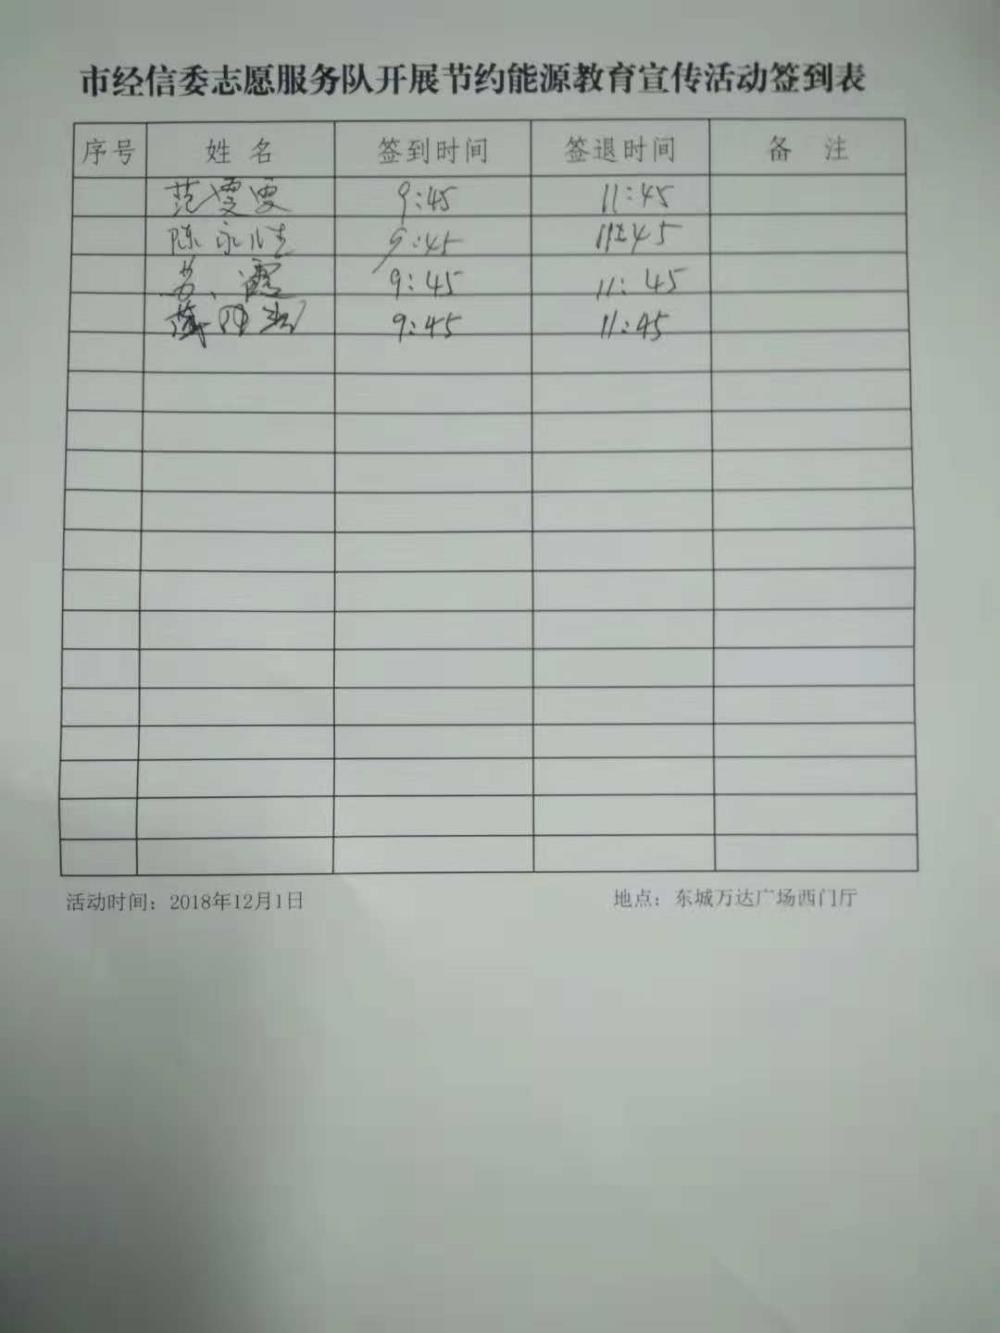 市经信委志愿服务队开展节约能源教育宣传活动签到表
序号 姓名 签到时间 签退时间 备注
范雯雯 9:45 11:45
陈永 9:45 11:45
苏霞 9:45 11:45
9:45 11:45
活动时间：2018年12月1日 地点：东城万达广场西门厅